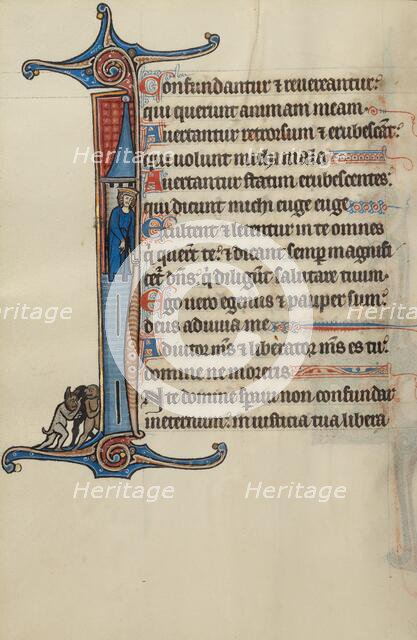 Confundantur & reuereantur:
qui querunt animam meam.
Auertantur retrorsum & erubescāt:
qui uolunt michi mala.
Auertantur statim erubescentes:
qui dicunt michi euge euge.
Exultent & letentur in te omnes
q̇ querēt te: & dicant semper magnifi
cet dn̄s: q̇ diligūt salutare tuum.
Ego uero egenus & pauper sum:
deus adiuua me.
Adiutor m̄s & liberator m̄s es tu:
domine ne moreris.
In te domine speraui non confundar
ineternum: in iusticia tua libera
Heritage
Heritage
Heritage
Heritage
Heritage
Heritage
Heritage
Heritage
Heritage